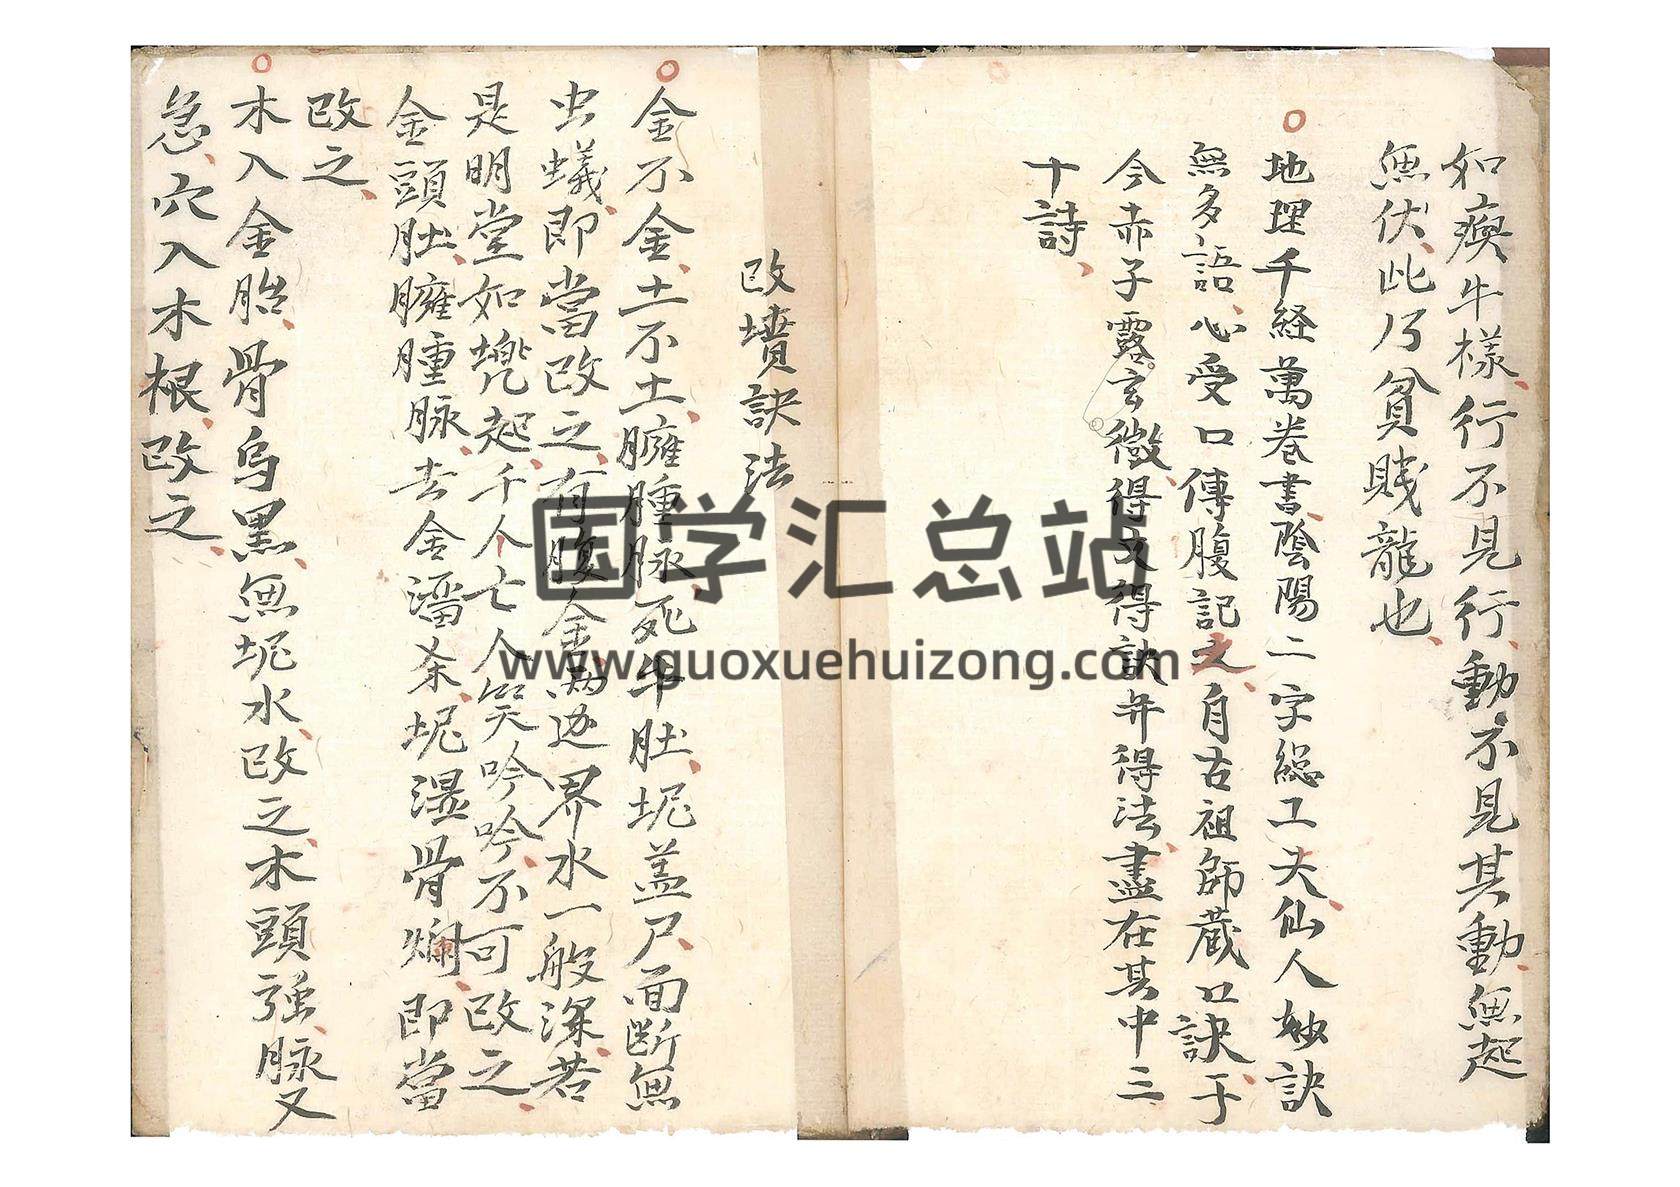 如瘓牛樣、行不見行、動不見其動、無起
無伏、此乃貧賎龍也、
地理千経萬卷書、陰陽二字総工夫、仙人妙訣
無多語、心受口傳腹記之、自古祖師蔵口訣、于
今赤子露玄微、得文得訣并得法、盡在其中三
十詩、
改墳訣法
金不金、土不土、臃腫脉、死牛肚、坭盖尸、面断無
虫蟻、即當改之、有腹金、兩边界水一般深、若
是明堂如㙈起、千人亡人笑吟吟、不可改之、
金頭肚、臃腫脉、去金濇条、坭湿骨爛、即當
改之、
木入金胎、骨烏黑、無坭水、改之、木頭强、脉又
急、穴入木根、改之、
国学汇总站
www.guoxuehuizong.com